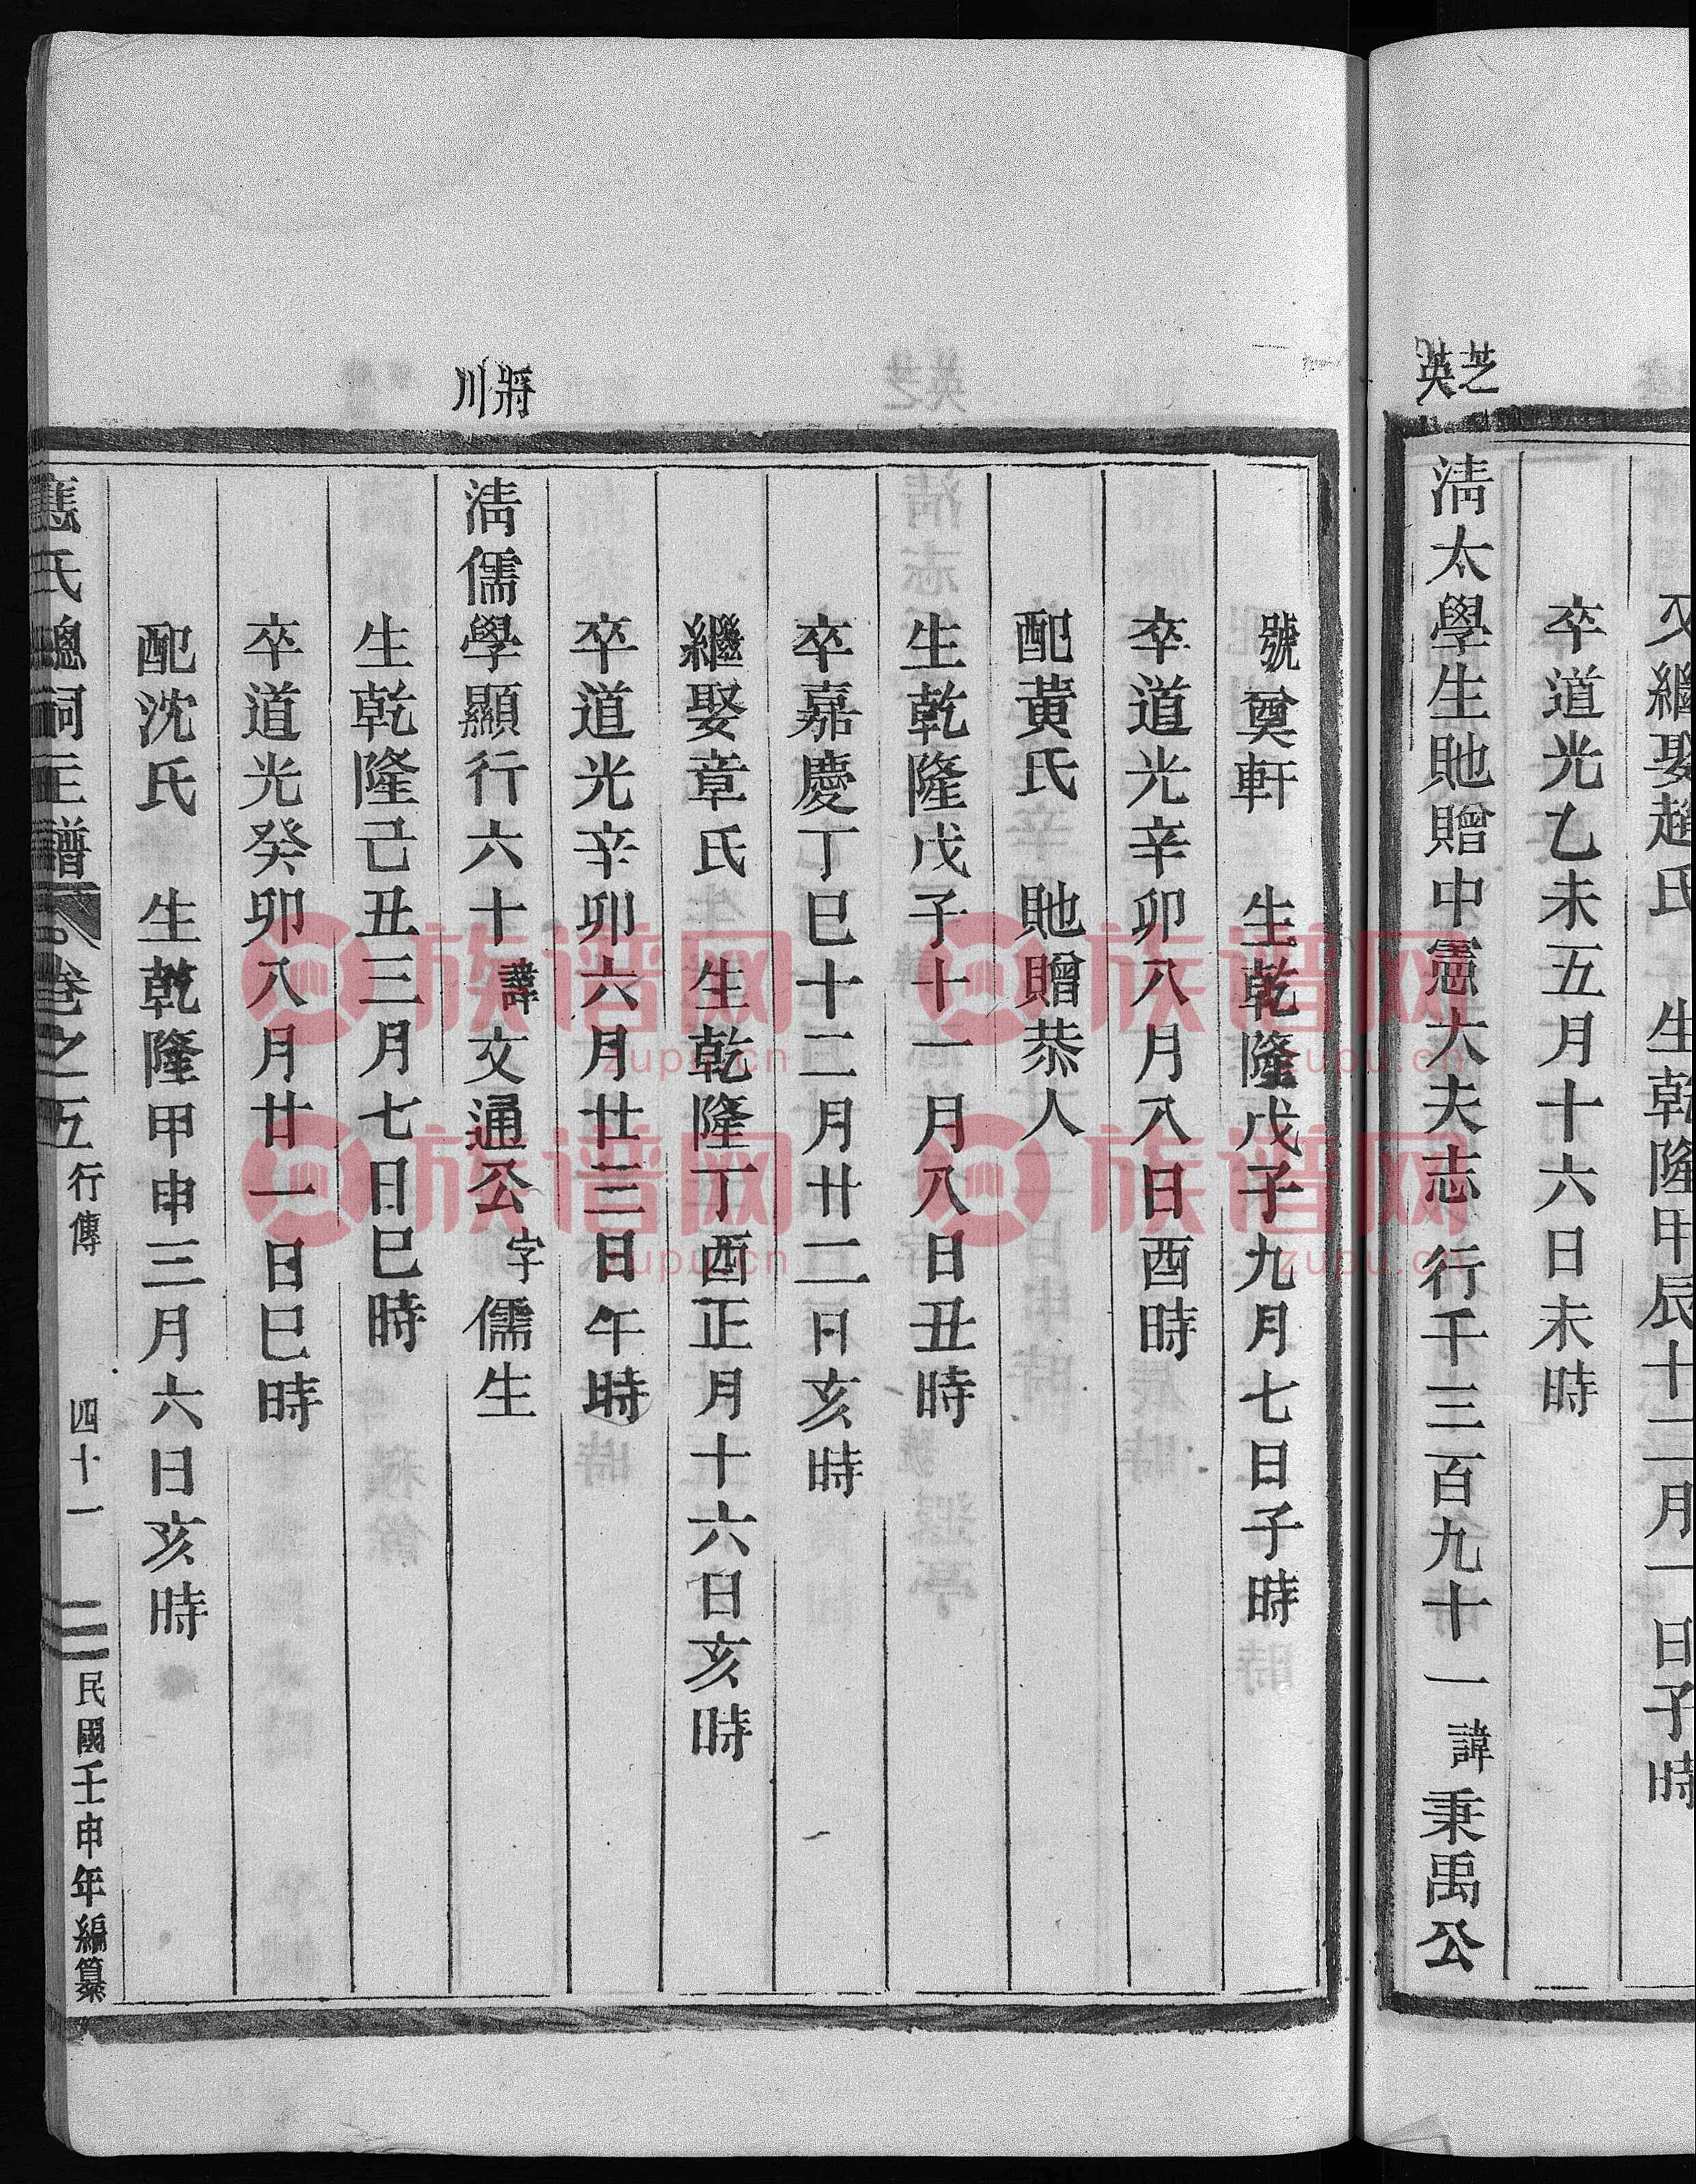 又繼娶趙氏 生乾隆甲辰十二月一日子時
卒道光乙未五月十六日未時
芝英
清太學生貤贈中憲大夫志行千三百九十一諱秉禹公
號奠軒 生乾隆戊子九月七日子時
卒道光辛卯八月八日酉時
配黃氏 貤贈恭人
生乾隆戊子十一月八日丑時
卒嘉慶丁巳十二月廿二日亥時
繼娶章氏 生乾隆丁酉正月十六日亥時
卒道光辛卯六月廿三日午時
將川
清儒學顯行六十諱文通公字儒生
生乾隆己丑三月七日巳時
卒道光癸卯八月廿一日巳時
配沈氏 生乾隆甲申三月六日亥時
應氏總祠主譜 卷之五 行傳 四十一 民國壬申年編纂
族谱网 zupu.cn
族谱网 zupu.cn
族谱网 zupu.cn
族谱网 zupu.cn